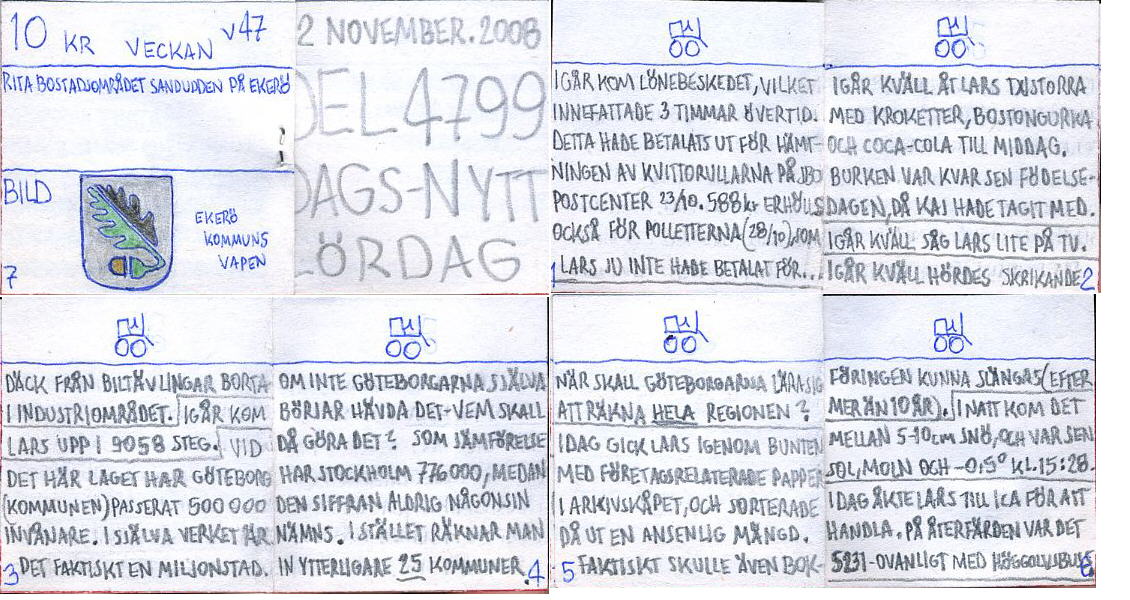 10 KR VECKAN V47
RITA BOSTADSOMRÅDET SANDUDDEN PÅ EKERÖ
BILD
EKERÖ
KOMMUNS
VAPEN
7
2 NOVEMBER.2008
DEL 4799
DAGS-NYTT
LÖRDAG
IGÅR KOM LÖNEBESKEDET, VILKET
INNEFATTADE 3 TIMMAR ÖVERTID.
DETTA HADE BETALATS UT FÖR HÄMT-
NINGEN AV KVITTORULLARNA PÅ
POSTCENTER 23/10. 588kr ERHÖLLS
OCKSÅ FÖR POLLETTERNA (28/10), SOM
LARS JU INTE HADE BETALAT FÖR...
1
IGÅR KVÄLL ÅT LARS TXISTORRA
MED KROKETTER, BOSTONGURKA
OCH COCA-COLA TILL MIDDAG.
BURKEN VAR KVAR SEN FÖDELSE-
DAGEN, DÅ KAJ HADE TAGIT MED.
IGÅR KVÄLL SÅG LARS LITE PÅ TV.
IGÅR KVÄLL HÖRDES SKRIKANDE
2
DÄCK FRÅN BILTÄVLINGAR BORTA
I INDUSTRIOMRÅDET. IGÅR KOM
LARS UPP I 9058 STEG. VID
DET HÄR LAGET HAR GÖTEBORG
(KOMMUNEN) PASSERAT 500 000
INVÅNARE. I SJÄLVA VERKET ÄR
DET FAKTISKT EN MILJONSTAD.
3
OM INTE GÖTEBORGARNA SJÄLVA
BÖRJAR HÄVDA DET-VEM SKALL
DÅ GÖRA DET? SOM JÄMFÖRELSE
HAR STOCKHOLM 776 000, MEDAN
DEN SIFFRAN ALDRIG NÅGONSIN
NÄMNS. I STÄLLET RÄKNAR MAN
IN YTTERLIGARE 25 KOMMUNER.
4
NÄR SKALL GÖTEBORGARNA LÄRA SIG
ATT RÄKNA HELA REGIONEN?
IDAG GICK LARS IGENOM BUNTEN
MED FÖRETAGSRELATERADE PAPPER
I ARKIVSKÅPET, OCH SORTERADE
DÅ UT EN ANSENLIG MÄNGD.
FAKTISKT SKULLE ÄVEN BOK-
5
FÖRINGEN KUNNA SLÄNGAS (EFTER
MER ÄN 10 ÅR). I NATT KOM DET
MELLAN 5-10cm SNÖ, OCH VAR SEN
SOL, MOLN OCH -0,5° KL.15:28.
IDAG ÅKTE LARS TILL ICA FÖR ATT
HANDLA. PÅ ÅTERFÄRDEN VAR DET
5231-OVANLIGT MED HÖGGOLVSBUSS
6